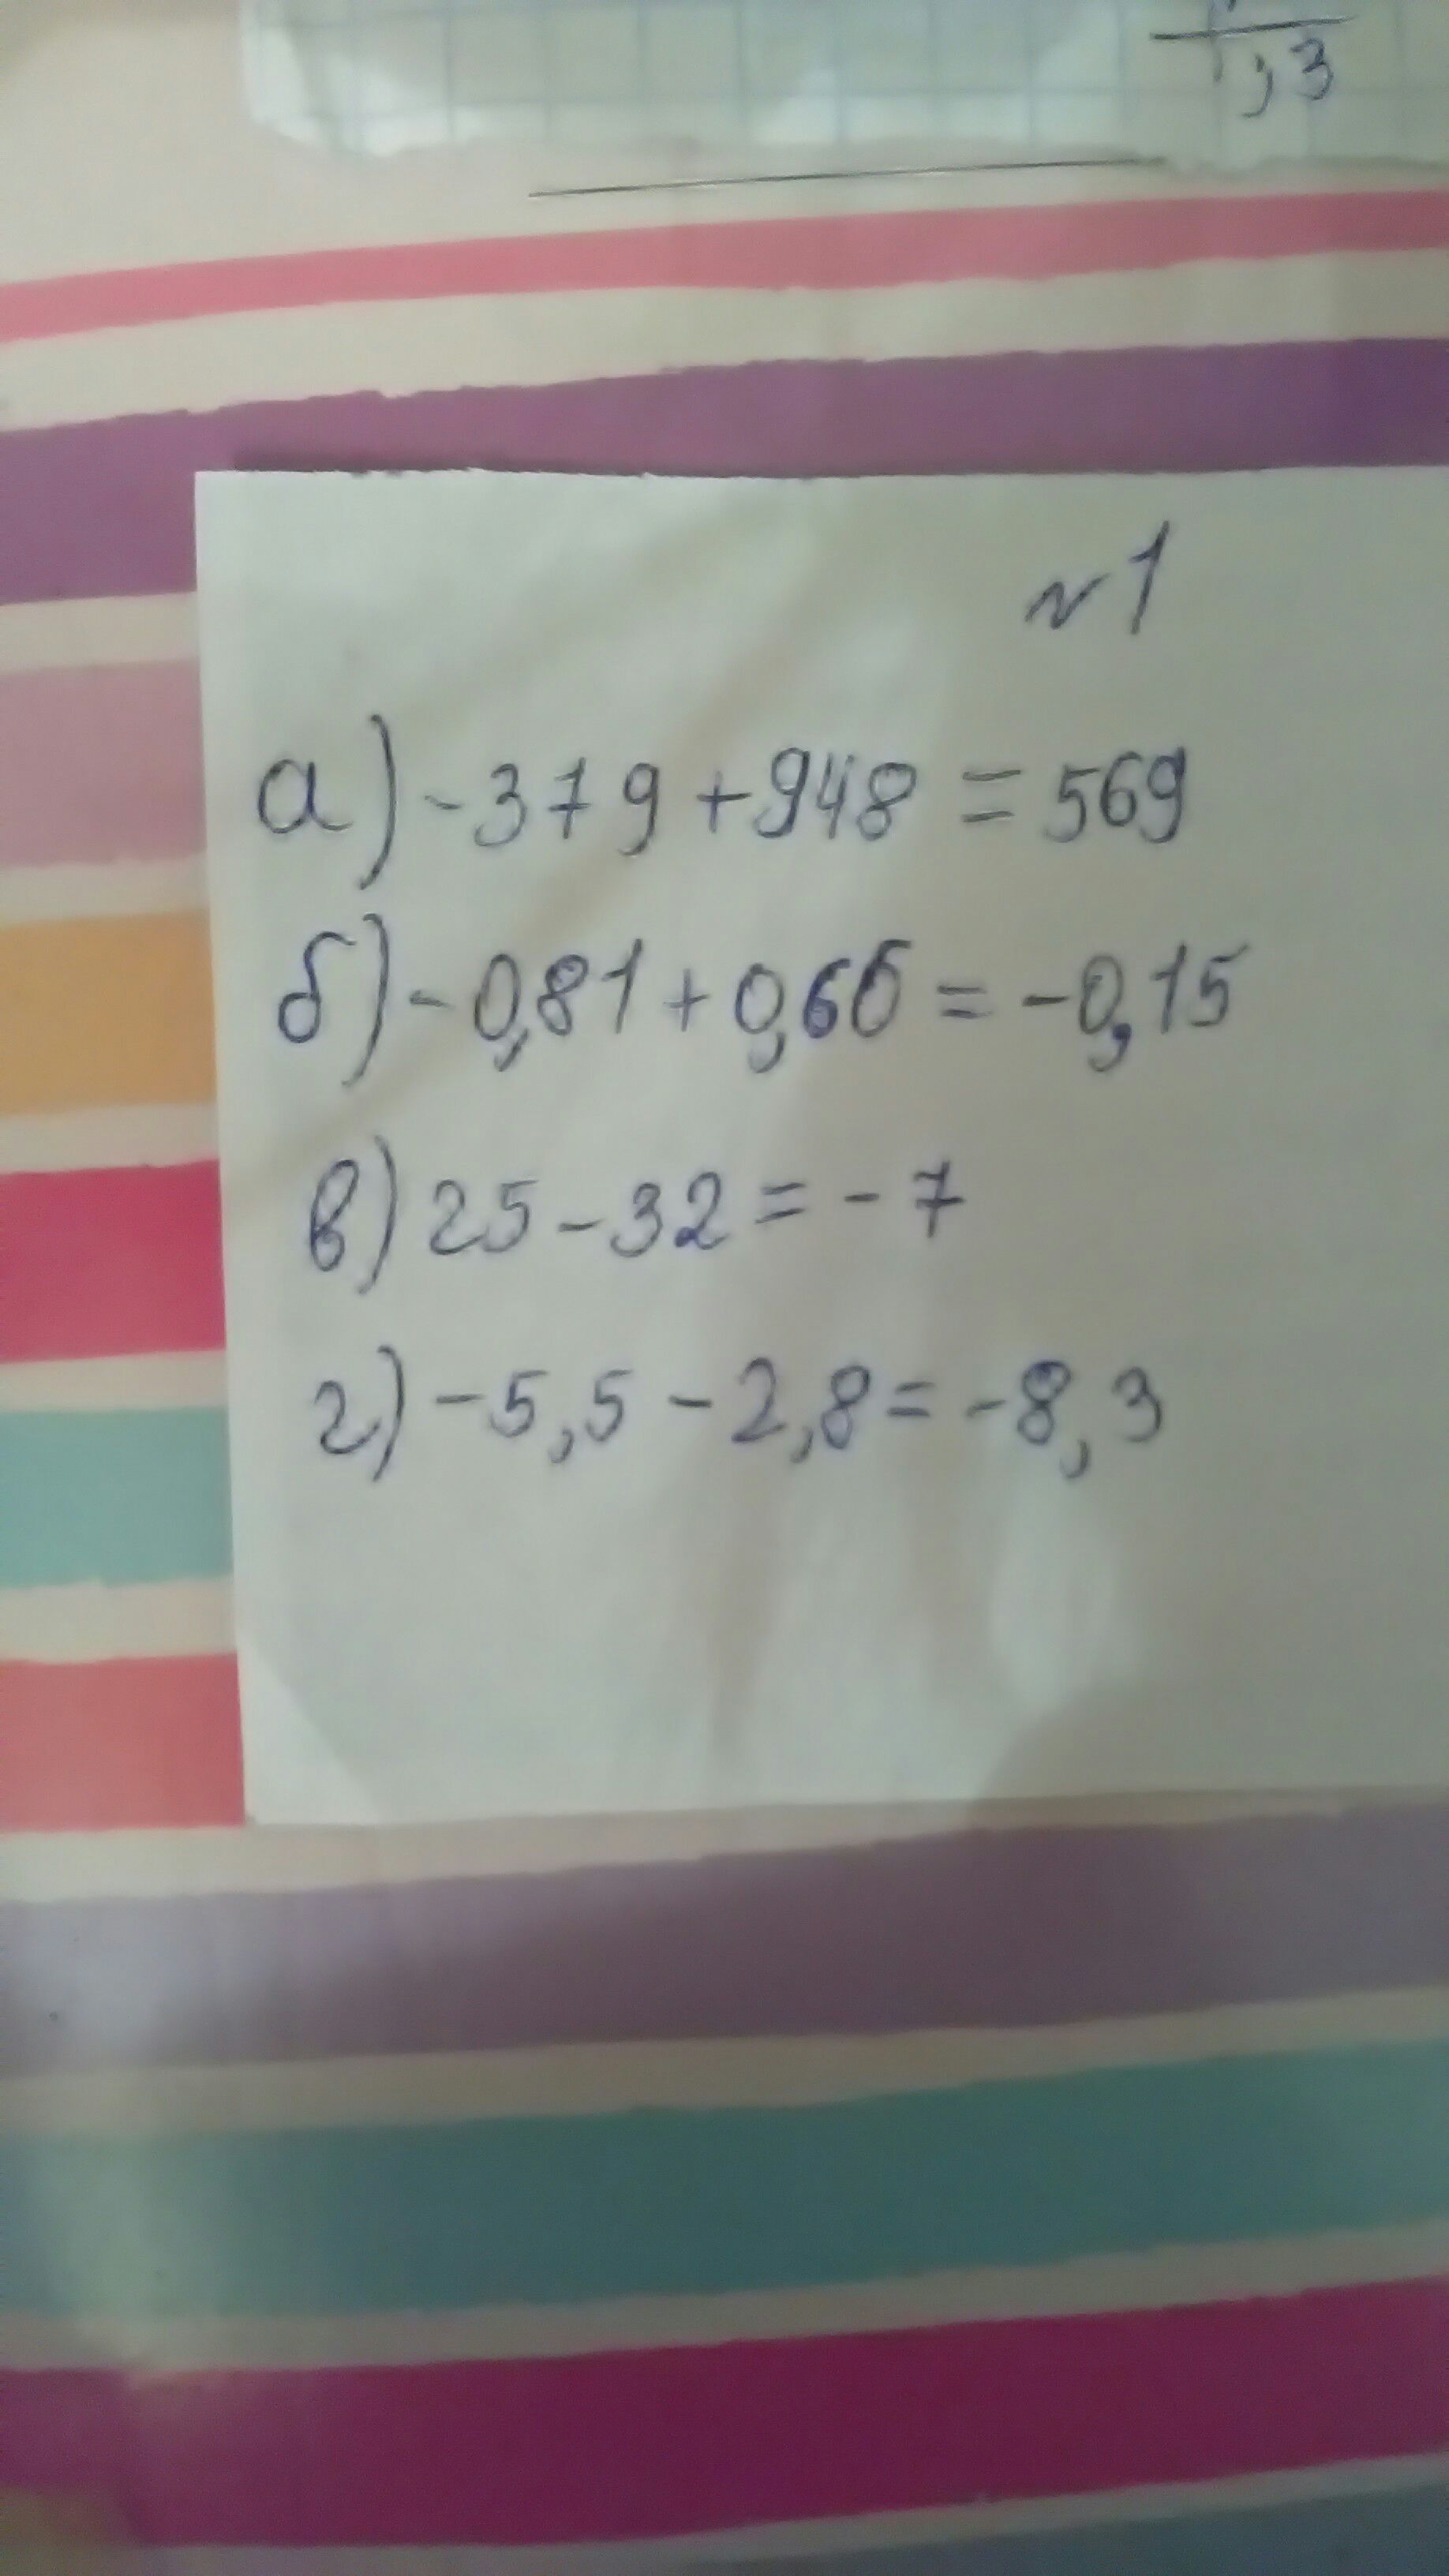 ,3
№1
а) -379 + 948 = 569
б) -0,81 + 0,66 = -0,15
в) 25 - 32 = -7
г) -5,5 - 2,8 = -8,3